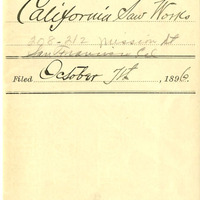 California Saw Works
208-212 Mission St
San Francisco Cal
Filed October 7th, 1896.